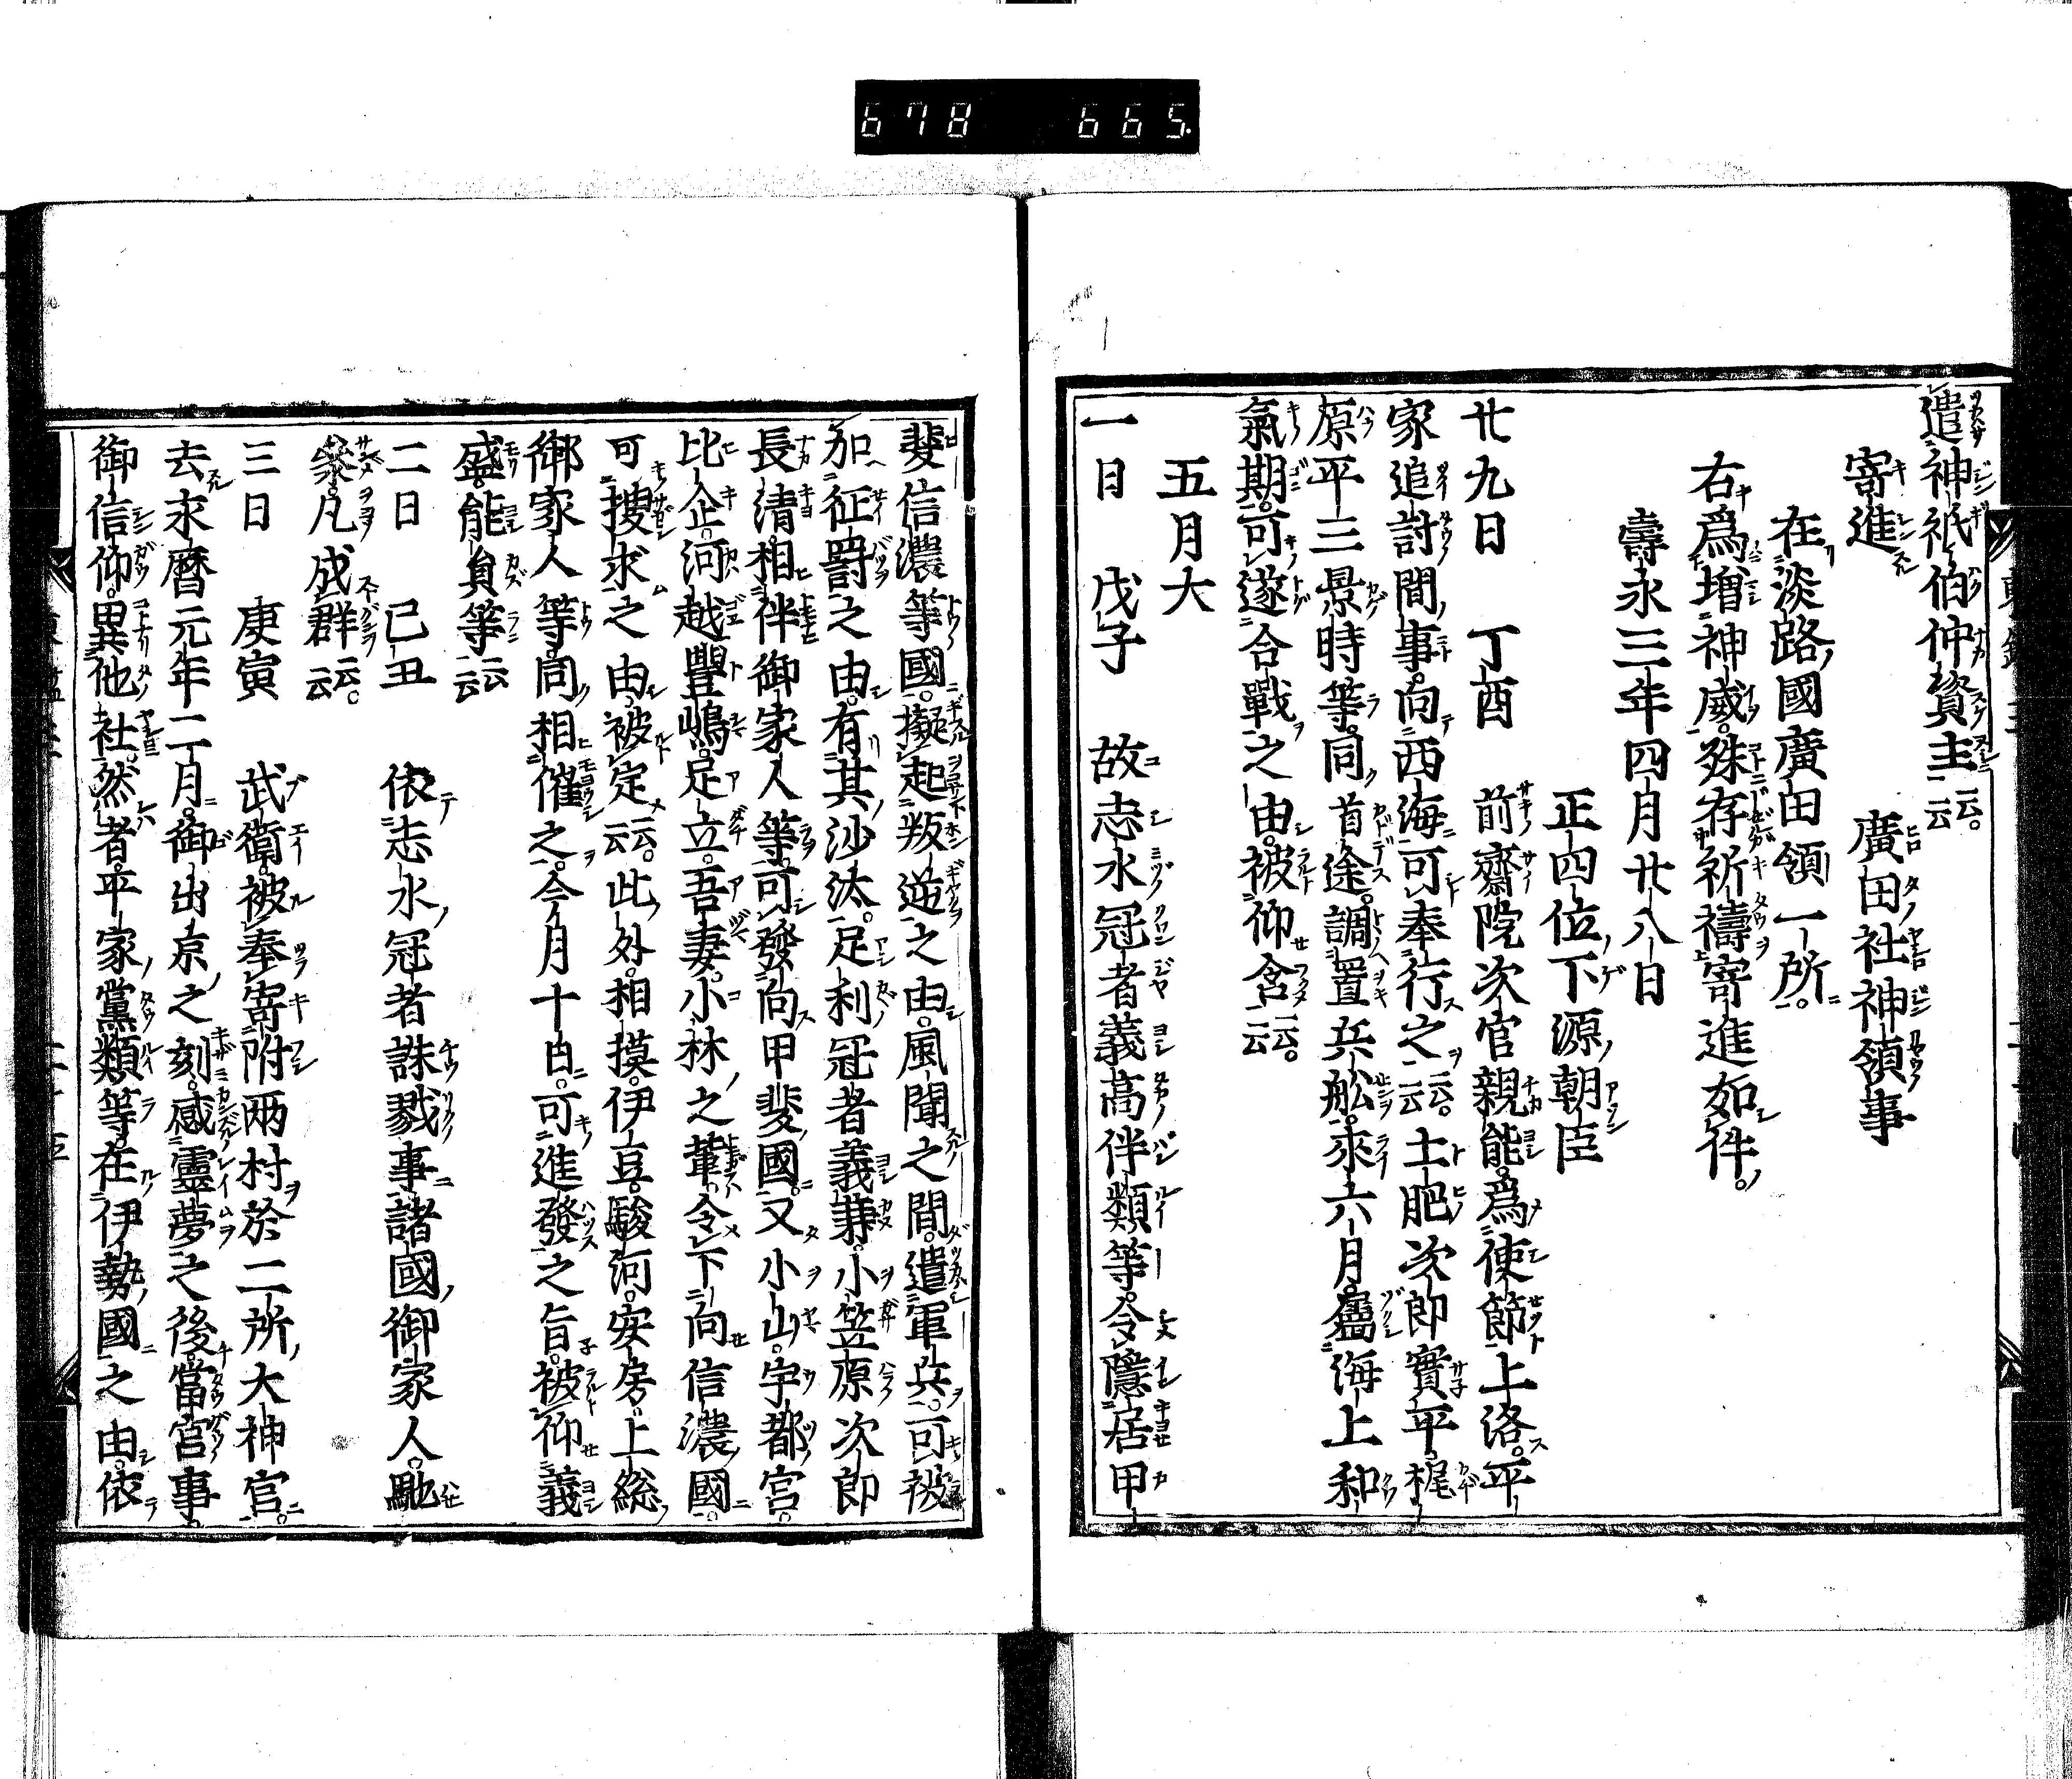 678 665
遣神祇伯仲資主云云。
寄進 廣田社神領事
在淡路國廣田領一所。
右爲増神威。殊存祈禱寄進如件。
壽永三年四月廿八日
正四位下源朝臣
廿九日 丁酉 前齋院次官親能。爲使節上洛。平
家追討間事。向西海可奉行之云云。土肥次郎實平。梶
原平三景時等。同首途。調置兵舩。來六月。屬海上和
氣期。可遂合戰之由。被仰含云云。
五月大
一日 戊子 故志水冠者義高伴類等。令隱居甲
斐信濃等國。擬起叛逆之由。風聞之間。遣軍兵。可被
加征罰之由。有其沙汰。足利冠者義兼。小笠原次郎
長清。相伴御家人等。可發向甲斐國。又小山。宇都宮。
比企。河越。豐嶋。足立。吾妻。小林之輩。令下向信濃國。
可搜求之由。被定云云。此外。相摸。伊豆。駿河。安房。上総
御家人等。同相催之。今月十日。可進發之旨。被仰義
盛。能員等云云
二日 己丑 依志水冠者誅戮事。諸國御家人。馳
參。凡成群云云。
三日 庚寅 武衞。被奉寄附兩村於二所大神宮。
去永暦元年二月。御出京之刻。感靈夢之後。當宮事。
御信仰。異他社。然者。平家黨類等。在伊勢國之由。依